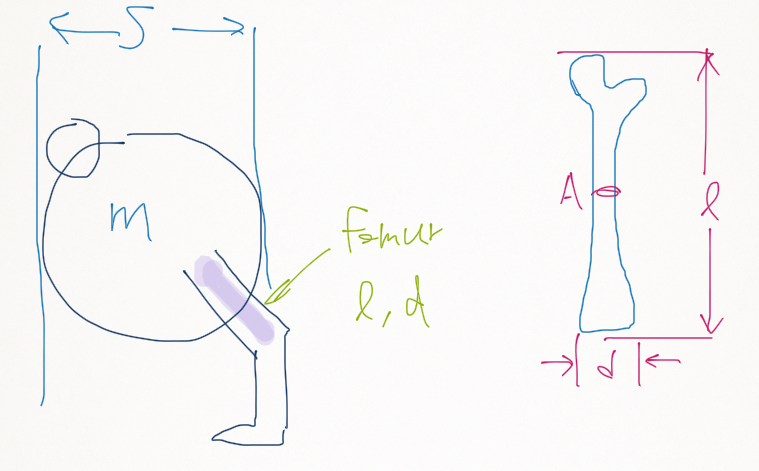 S
m
Femur
l, d
A
l
d